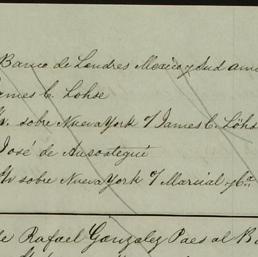 Banco de Londres Mexico y Sud Ame
James C. Lohse
sobre Nueva York % James C. Lohs
José de Ansoategui
sobre Nueva York % Marcial y Ca
de Rafael Gonzalez Paes al Ba